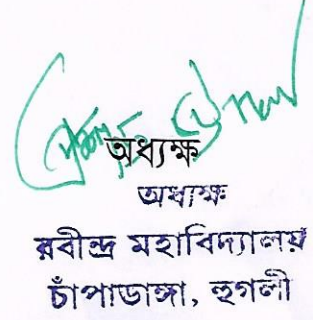 অধ্যক্ষ
অধ্যক্ষ
রবীন্দ্র মহাবিদ্যালয়
চাঁপাডাঙ্গা, হুগলী